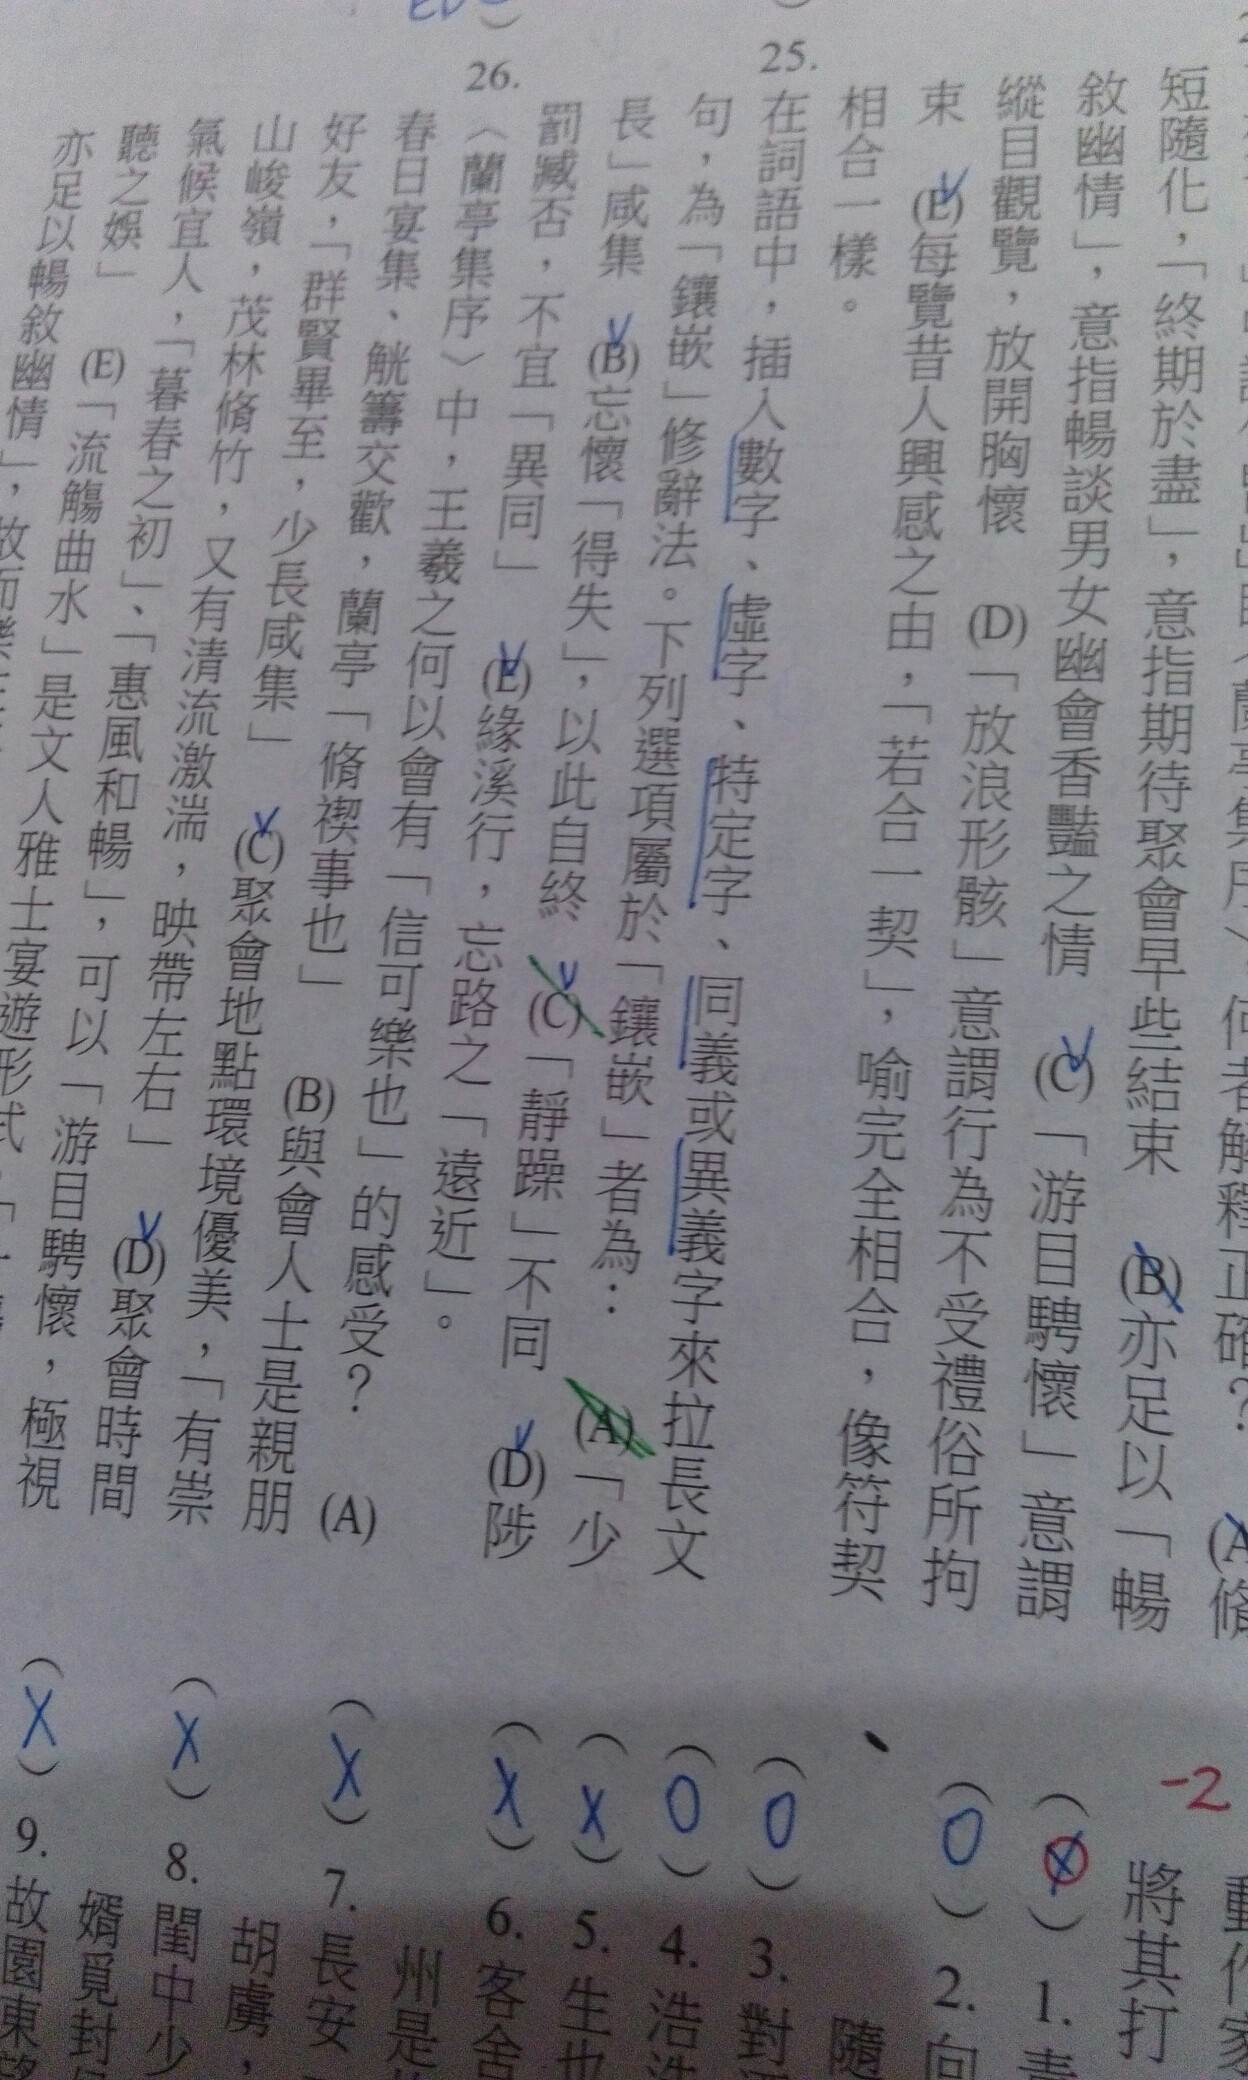 短隨化，「終期於盡」，意指期待聚會早些結束 (B)亦足以「暢
敘幽情」，意指暢談男女幽會香豔之情 (C)「游目騁懷」意謂
縱目觀覽，放開胸懷 (D)「放浪形骸」意謂行為不受禮俗所拘
束 (E)每覽昔人興感之由，「若合一契」，喻完全相合，像符契
相合一樣。
25. 在詞語中，插入數字、虛字、特定字、同義或異義字來拉長文
句，為「鑲嵌」修辭法。下列選項屬於「鑲嵌」者為： (A)「少
長」咸集 (B)忘懷「得失」，以此自終 (C)「靜躁」不同 (D)陟
罰臧否，不宜「異同」 (E)緣溪行，忘路之「遠近」。
26. 〈蘭亭集序〉中，王羲之何以會有「信可樂也」的感受？ (A)
春日宴集、觥籌交歡，蘭亭「脩禊事也」 (B)與會人士是親朋
好友，「群賢畢至，少長咸集」 (C)聚會地點環境優美，「有崇
山峻嶺，茂林脩竹，又有清流激湍，映帶左右」 (D)聚會時間
氣候宜人，「暮春之初」、「惠風和暢」，可以「游目騁懷，極視
聽之娛」 (E)「流觴曲水」是文人雅士宴遊形式，「一
亦足以暢敘幽情」，故而樂
-2
將其打
(X) 1.
(O) 2. 向
隨
(O) 3. 對
(O) 4. 浩浩
(X) 5. 生也
(X) 6. 客舍
州是
(X) 7. 長安
胡虜，
(X) 8. 閨中少
婿覓封
(X) 9. 故園東望